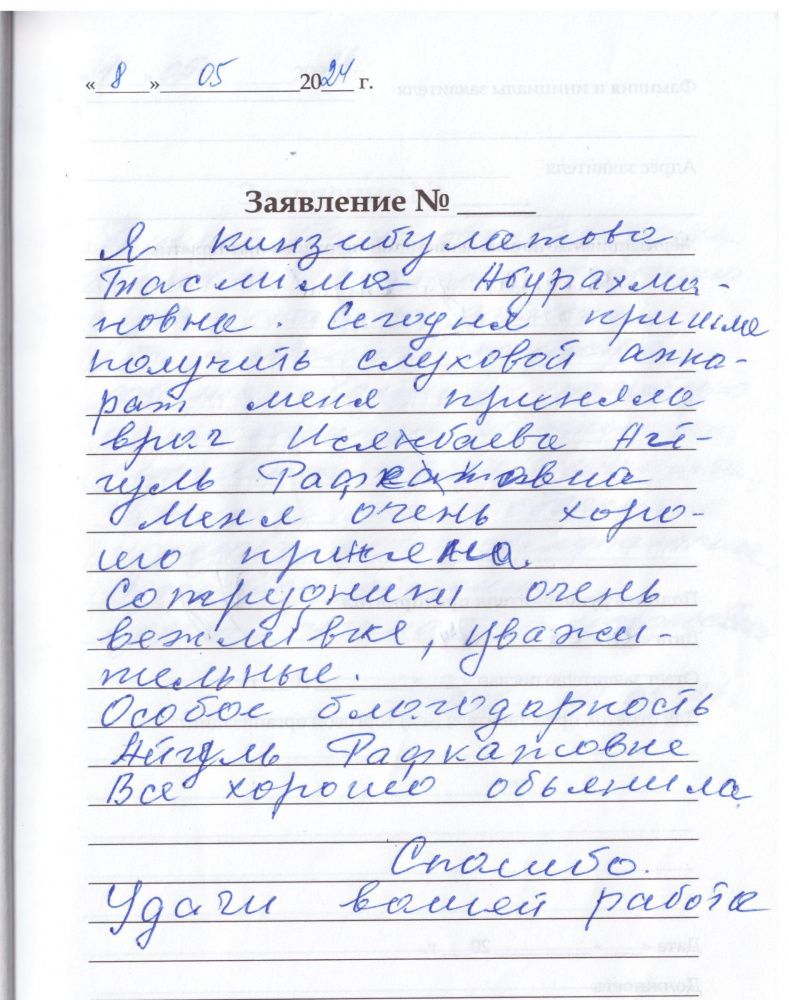 «8» 05 2024 г.
Заявление №
Я Кинзибулатова
Таслима Абурахма-
новна. Сегодня пришла
получить слуховой аппа-
рат меня приняла
врач Исянбаева Ай-
гуль Рафкатовна
Меня очень хоро-
шо приняла.
Сотрудники очень
вежливые, уважи-
тельные.
Особое благодарность
Айгуль Рафкатовне
Все хорошо обьянила
Спасибо.
Удачи вашей работе